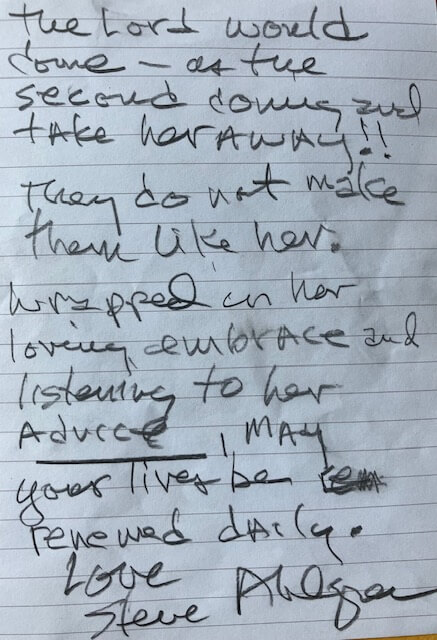 the Lord would
come – as the
second coming and
take her AWAY!!
They do not make
them like her.
wrapped in her
loving embrace and
listening to her
Advice, MAY
your lives be
renewed daily.
Love
Steve